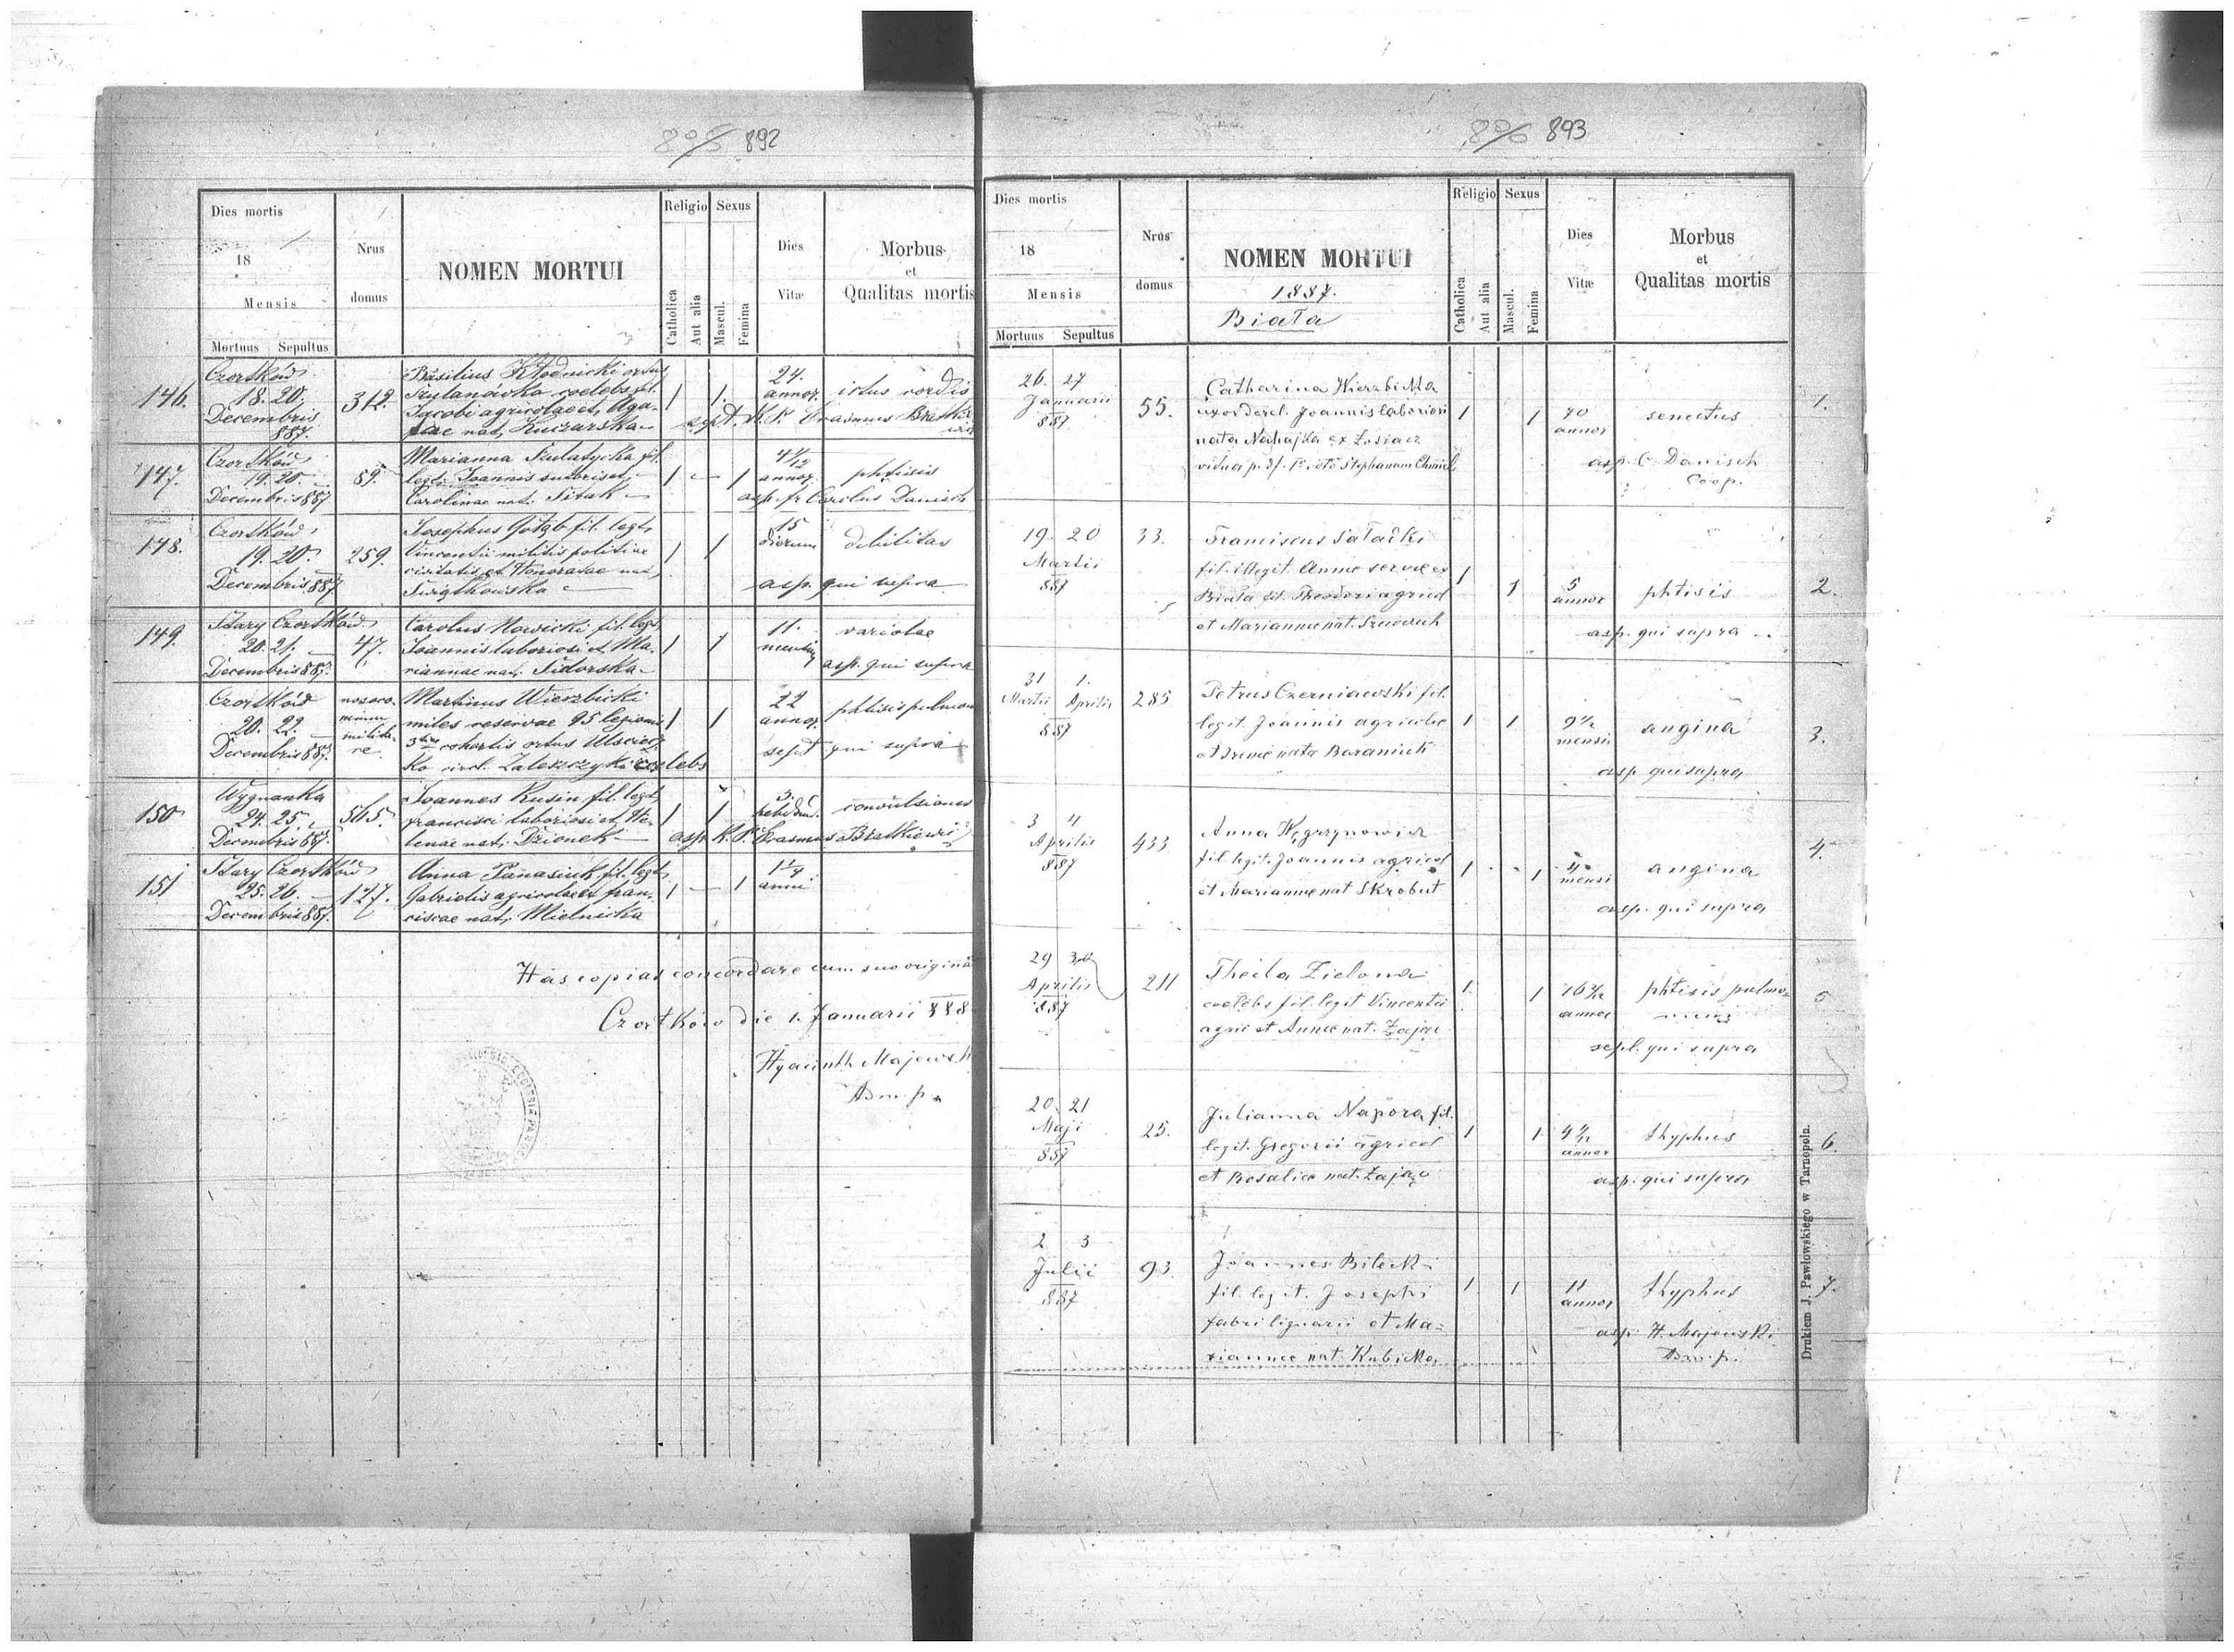 892
Dies mortis
18
Mensis
Mortuus Sepultus
Nrus
domus
NOMEN MORTUI
Religio
Catholica
Aut alia
Sexus
Mascul.
Femina
Dies
Vitæ
Morbus
et
Qualitas mortis
146.
Czortków
18. 20.
Decembris
887.
312.
Basilius Kłodnicki ortus
coelebs fil.
Jacobi agricolae et Aga-
nat. Kuczarska
1 1.
24.
annor.
ictus cordis
sept. K. P. Erasmus
147.
Czortków
19. 20.
Decembris 887
89.
Marianna fil.
legt. Joannis sutoris et
Carolinae nat. Sitak
1 — 1
annor.
phtisis
asp. fr Carolus Danisch
148.
Czortków
19. 20
Decembris 887
259.
Josephus Gołąb fil. legt.
Vincentii militis politiae
civitatis et Honoratae nat.
1 1
15
dierum
debilitas
asp. qui supra
149.
Stary Czortków
20. 21.
Decembris 887.
47.
Carolus Nowicki fil. legt.
Joannis laboriosi et Ma-
riannae nat. Sidorska
1 1
11.
mensium
variolae
asp. qui supra
Czortków
20. 22.
Decembris 887.
nosoco-
mium
milita-
re
Martinus Wierzbicki
miles reservae 95 legionis
cohortis ortus
ko circl. Zaleszczyki coelebs
1 1
22
annor.
phtisis pulmon
sept qui supra
150
Wygnanka
24. 25.
Decembris 887.
565.
Joannes Rusin fil. legt.
francisci laboriosi et He-
lenae nat. Dzionek
1 1
3.
hebdom.
convulsiones
asp. K. P. Erasmus Bratkiewicz
151
Stary Czortków
25. 26.
Decembris 887.
127.
Anna Panasiuk fil. legt.
Gabrielis agricolae et fran-
ciscae nat. Mielnicka
1 — 1
1 1/4
anni
Has copias concordare cum suo origina
Czortków die 1. Januarii 888
Hyacinth Majewsk
Adm. p.
893
Dies mortis
18
Mensis
Mortuus Sepultus
Nrus
domus
NOMEN MORTUI
1887.
Biała
Religio
Catholica
Aut alia
Sexus
Mascul.
Femina
Dies
Vitæ
Morbus
et
Qualitas mortis
26. 27
Januarii
887
55.
Catharina Wierzbicka
uxor derel. Joannis laboriosi
nata Nahajka ex Łosiacz
vidua p. Stephanum
1 1
70
annor
senectus
asp. C. Danisch
Coop.
1.
19. 20
Martii
887
33.
Franciscus Sałacki
fil. illegit. Annae servae ex
Biała fil. Theodori agricol
et Mariannae nat.
1 1
5
annor
phtisis
asp. qui supra
2.
31 1.
Martii Aprilis
887
285
Petrus Czerniawski fil.
legit. Joannis agricolae
et Irenae nata Baraniuk
1 1
mensis
angina
asp qui supra
3.
3 4
Aprilis
887
433
Anna Węgrzynowicz
fil. legit. Joannis agricol
et Mariannae nat Skrobut
1 1
mensi
angina
asp. qui supra
4.
29
Aprilis
887
211
Thecla Zielona
coelebs fil. legit Vincentii
agric et Annae nat. Zając
1 1
annor
phtisis pulmo=
sepl. qui supra
5
20 21
Maji
887
25.
Julianna Napora fil.
legit. Gregorii agricol
et Rosaliae nat. Zając
1 1
annor
thyphus
asp. qui supra
6.
2 3
Julii
887
93
Joannes Bilecki
fil. legit. Josephi
fabri lignarii et Ma=
riannae nat. Kubicka
1 1
11
annor
thyphus
asp. H. Majewski
Adm. p.
7.
Drukiem J. Pawłowskiego w Tarnopolu.